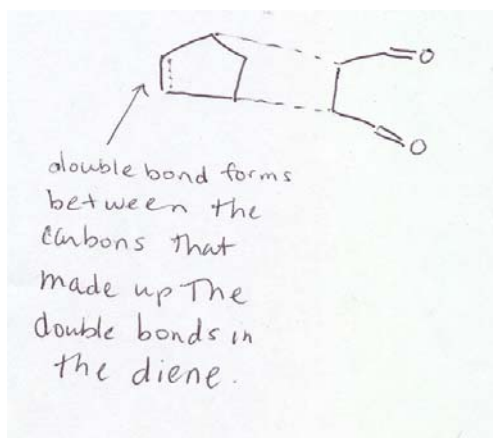 O
O
double bond forms
between the
carbons that
made up The
double bonds in
the diene.